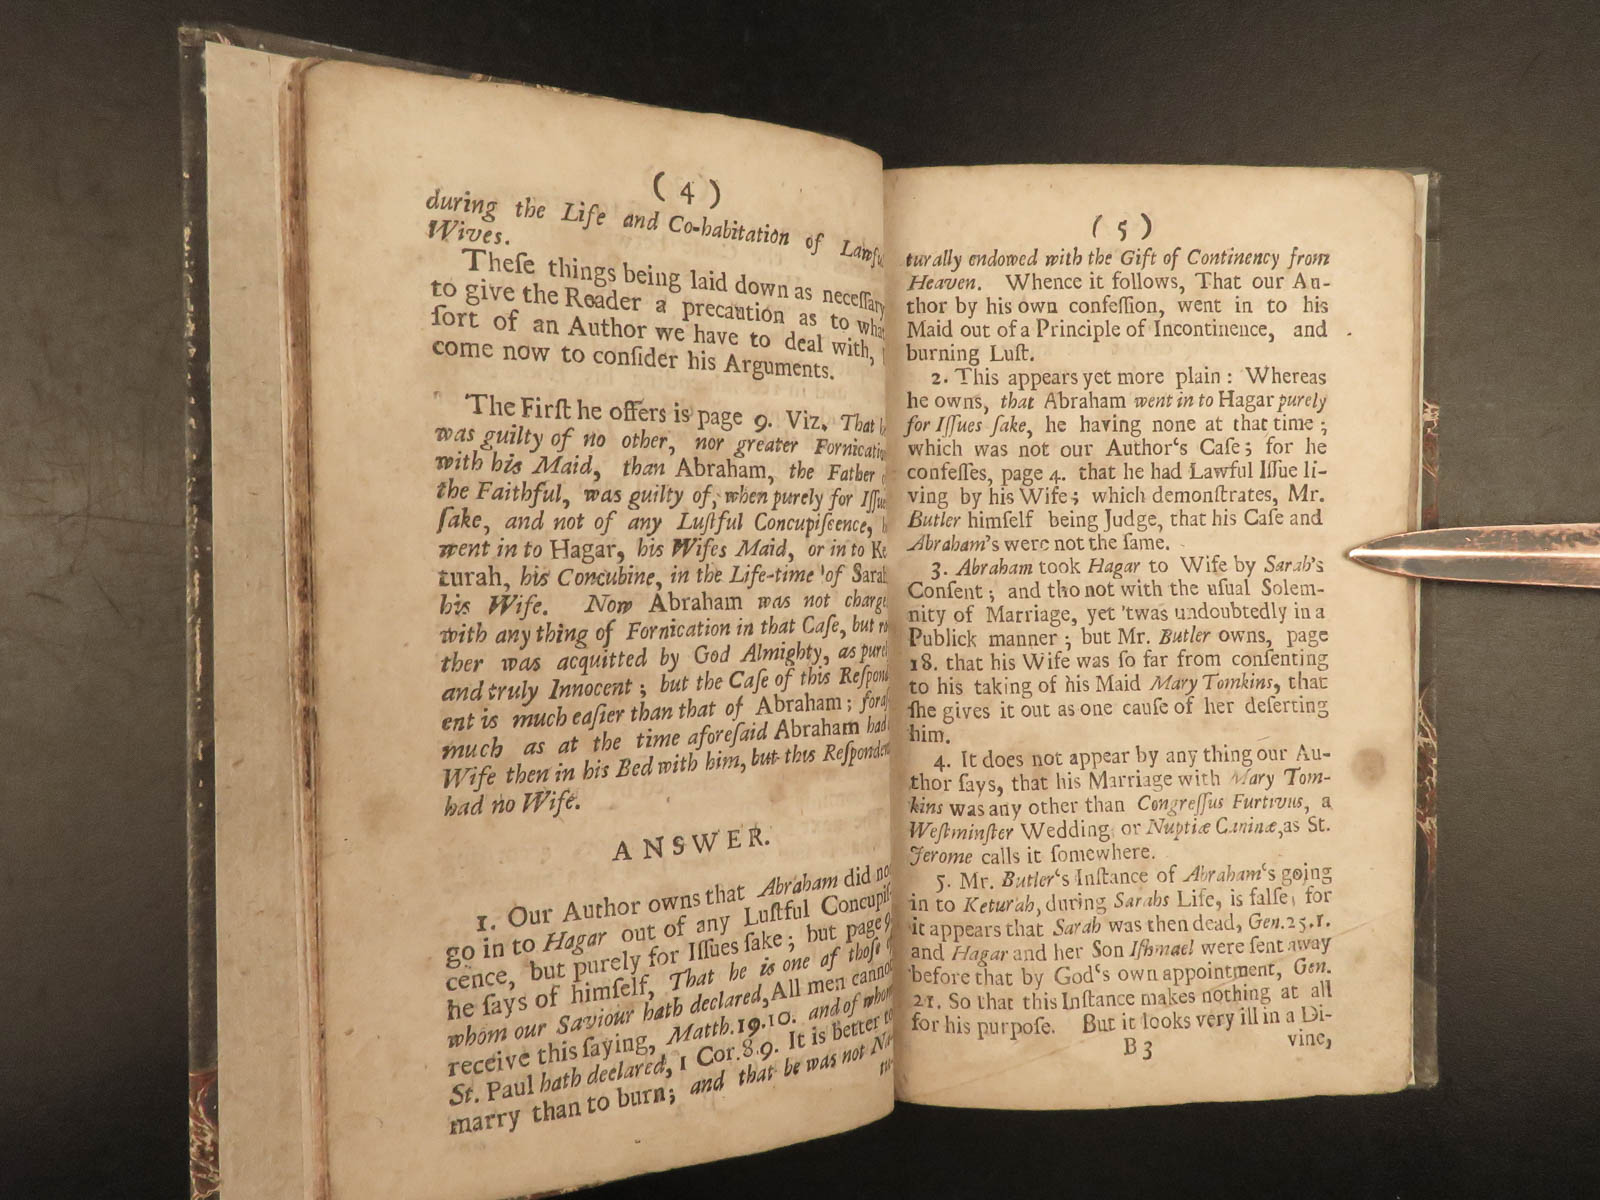 (4)
during the Life and Co-habitation of Lawful
Wives.
Theſe things being laid down as neceſſary
to give the Reader a precaution as to what
ſort of an Author we have to deal with,
come now to conſider his Arguments.
The Firſt he offers is page 9. Viz. That
was guilty of no other, nor greater Fornicatio
with his Maid, than Abraham, the Father
the Faithful, was guilty of, when purely for Iſſue
ſake, and not of any Luſtful Concupiſcence,
went in to Hagar, his Wifes Maid, or in to Ke
turah, his Concubine, in the Life-time of Sarah
his Wife. Now Abraham was not charge
with any thing of Fornication in that Caſe, but ra
ther was acquitted by God Almighty, as purel
and truly Innocent; but the Caſe of this Reſpond
ent is much eaſier than that of Abraham; foraſ
much as at the time aforeſaid Abraham had
Wife then in his Bed with him, but this Reſponden
had no Wife.
ANSWER.
1. Our Author owns that Abraham did not
go in to Hagar out of any Luſtful Concupiſ-
cence, but purely for Iſſues ſake; but page 9.
he ſays of himſelf, That he is one of thoſe
whom our Saviour hath declared, All men cannot
receive this ſaying, Matth. 19. 10. and of whom
St. Paul hath declared, 1 Cor. 8. 9. It is better to
marry than to burn; and that he was not Na-
tu-
(5)
turally endowed with the Gift of Continency from
Heaven. Whence it follows, That our Au-
thor by his own confeſſion, went in to his
Maid out of a Principle of Incontinence, and
burning Luſt.
2. This appears yet more plain: Whereas
he owns, that Abraham went in to Hagar purely
for Iſſues ſake, he having none at that time;
which was not our Author‘s Caſe; for he
confeſſes, page 4. that he had Lawful Iſſue li-
ving by his Wife; which demonſtrates, Mr.
Butler himſelf being Judge, that his Caſe and
Abraham's were not the ſame.
3. Abraham took Hagar to Wife by Sarah's
Conſent; and tho not with the uſual Solem-
nity of Marriage, yet 'twas undoubtedly in a
Publick manner; but Mr. Butler owns, page
18. that his Wife was ſo far from conſenting
to his taking of his Maid Mary Tomkins, that
ſhe gives it out as one cauſe of her deſerting
him.
4. It does not appear by any thing our Au-
thor ſays, that his Marriage with Mary Tom-
kins was any other than Congreſſus Furtivus, a
Weſtminſter Wedding or Nuptiæ Caninæ, as St.
Jerome calls it ſomewhere.
5. Mr. Butler‘s Inſtance of Abraham‘s going
in to Keturah, during Sarahs Life, is falſe, for
it appears that Sarah was then dead, Gen. 25. 1.
and Hagar and her Son Iſhmael were ſent away
before that by God‘s own appointment, Gen.
21. So that this Inſtance makes nothing at all
for his purpoſe. But it looks very ill in a Di-
B 3 vine,